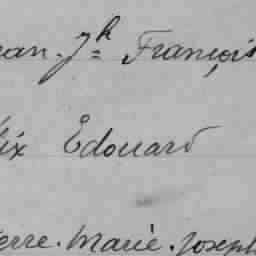 ean. Jh François
lix Edouard
ierre. Marie. Joseph